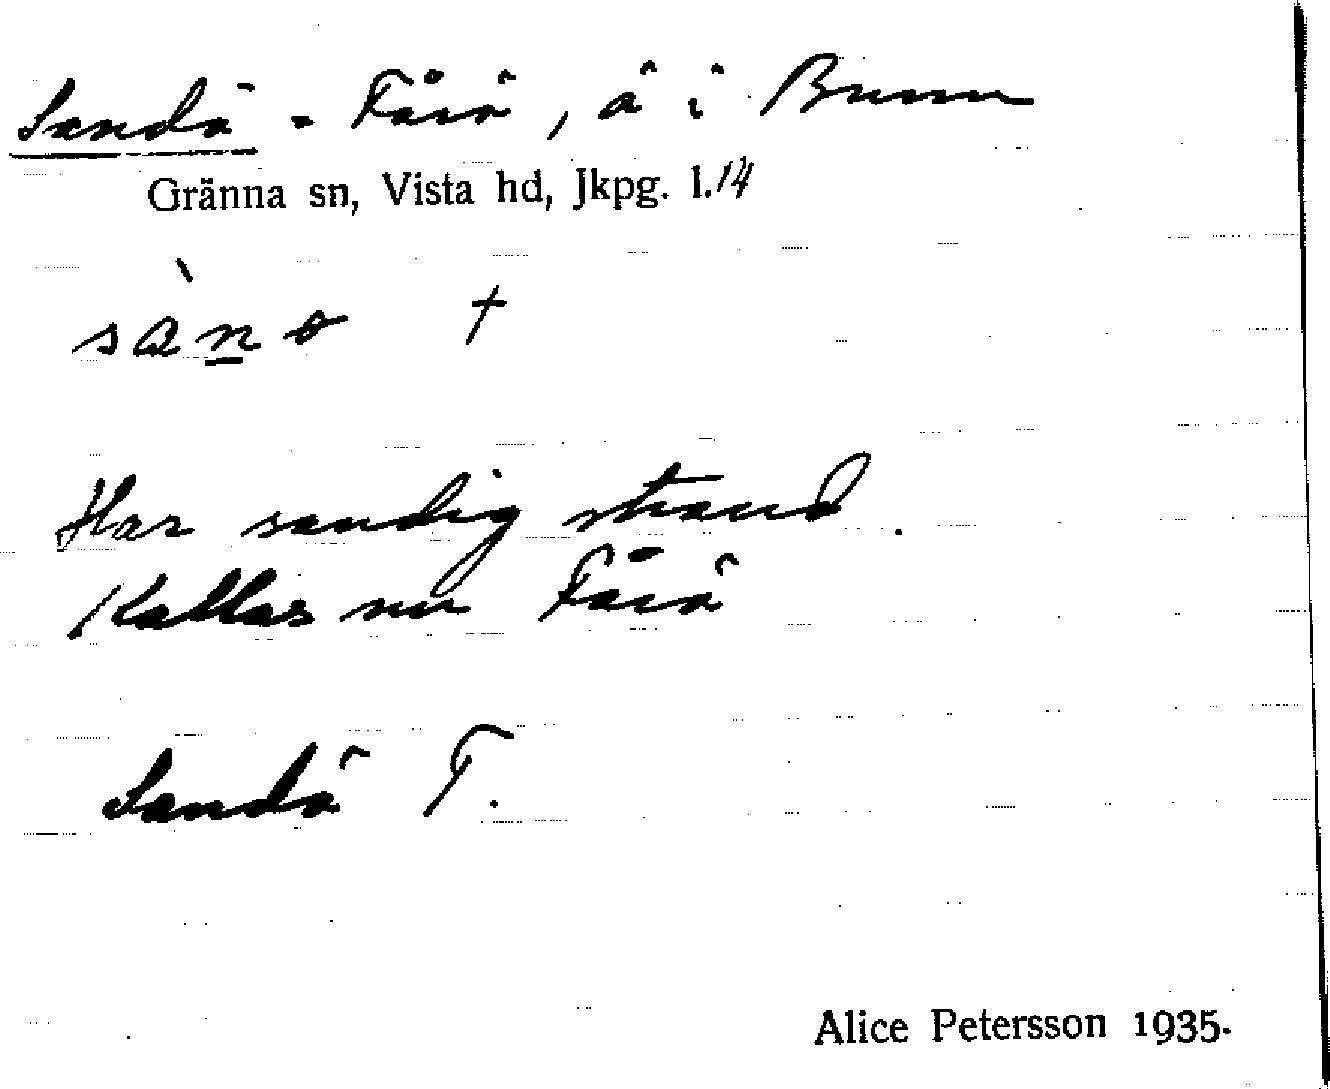 Sandö = Fårö, ö i Bunn
Gränna sn, Vista hd, Jkpg. l. 14
sànø †
Har sandig strand.
Kallas nu Fårö
Sandö T.
Alice Petersson 1935.